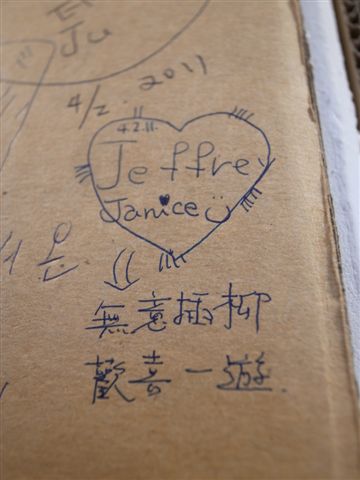 4/2. 2011
4.2.11.
Jeffrey
Janice
無意插柳
歡喜一遊.